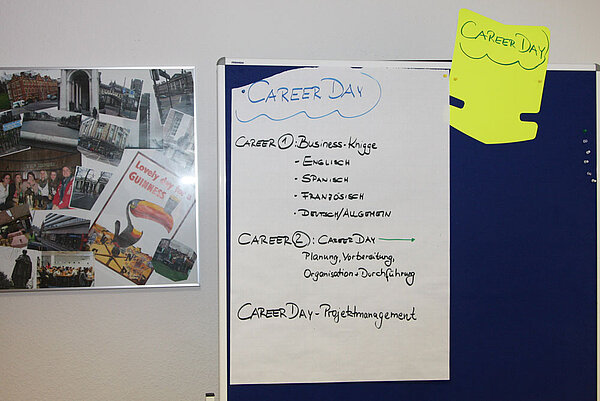 Lovely day for a
GUINNESS
CAREER DAY
CAREER DAY
CAREER ①: Business-Knigge
- ENGLISCH
- SPANISCH
- FRANZÖSISCH
- DEUTSCH/ALLGEMEIN
CAREER ②: CAREER DAY →
Planung, Vorbereitung,
Organisation + Durchführung
CAREER DAY - Projektmanagement